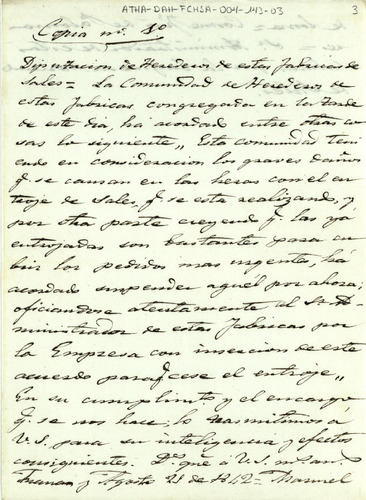 ATHA-DAH-FCHSA-004-143-03
3
Copia nº. 1º
Diputacion de Herederos de estas Fabricas de
Sales= La Comunidad de Herederos de
estas fabricas congregada en la tarde
de este dia, há acordado entre otras co
sas lo siguiente,, Esta comunidad teni
endo en consideracion los graves daños
q. se causan en las heras con el en
troje de Sales, q. se está realizando, y
por otra parte creyendo q. las yá
entrojadas son bastantes para cu
brir los pedidos mas urgentes, há
acordado suspender aquél por ahora;
oficiandose atentamente al Sr. Ad-
ministrador de estas fabricas por
la Empresa con insercion de este
acuerdo para q. cese el entroje,,
En su cumplimto. y el encargo
q. se nos hace, lo trasmitimos a
V.S. para su inteligencia y efectos
consiguientes. Ds. gue. á V.S. ms. as.
Agosto 21 de 1842= Manuel